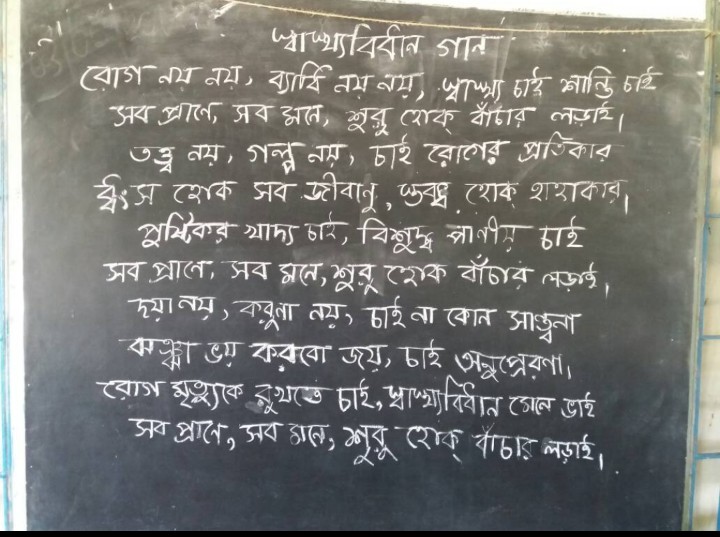 স্বাস্থ্যবিধান গান
রোগ নয় নয়, ব্যাধি নয় নয়, স্বাস্থ্য চাই শান্তি চাই
সব প্রাণে, সব মনে, শুরু হোক্ বাঁচার লড়াই।
তত্ত্ব নয়, গল্প নয়, চাই রোগের প্রতিকার
ধ্বংস হোক সব জীবানু, স্তবদ্ধ হোক্ হাহাকার।
পুষ্টিকর খাদ্য চাই, বিশুদ্ধ পাণীয় চাই
সব প্রাণে, সব মনে, শুরু হোক বাঁচার লড়াই।
দয়া নয়, করুণা নয়, চাই না কোন সান্ত্বনা
ঝঞ্ঝা ভয় করবো জয়, চাই অনুপ্রেরণা।
রোগ মৃত্যুকে রুখতে চাই, স্বাস্থ্যবিধান মেনে ভাই
সব প্রাণে, সব মনে, শুরু হোক্ বাঁচার লড়াই।